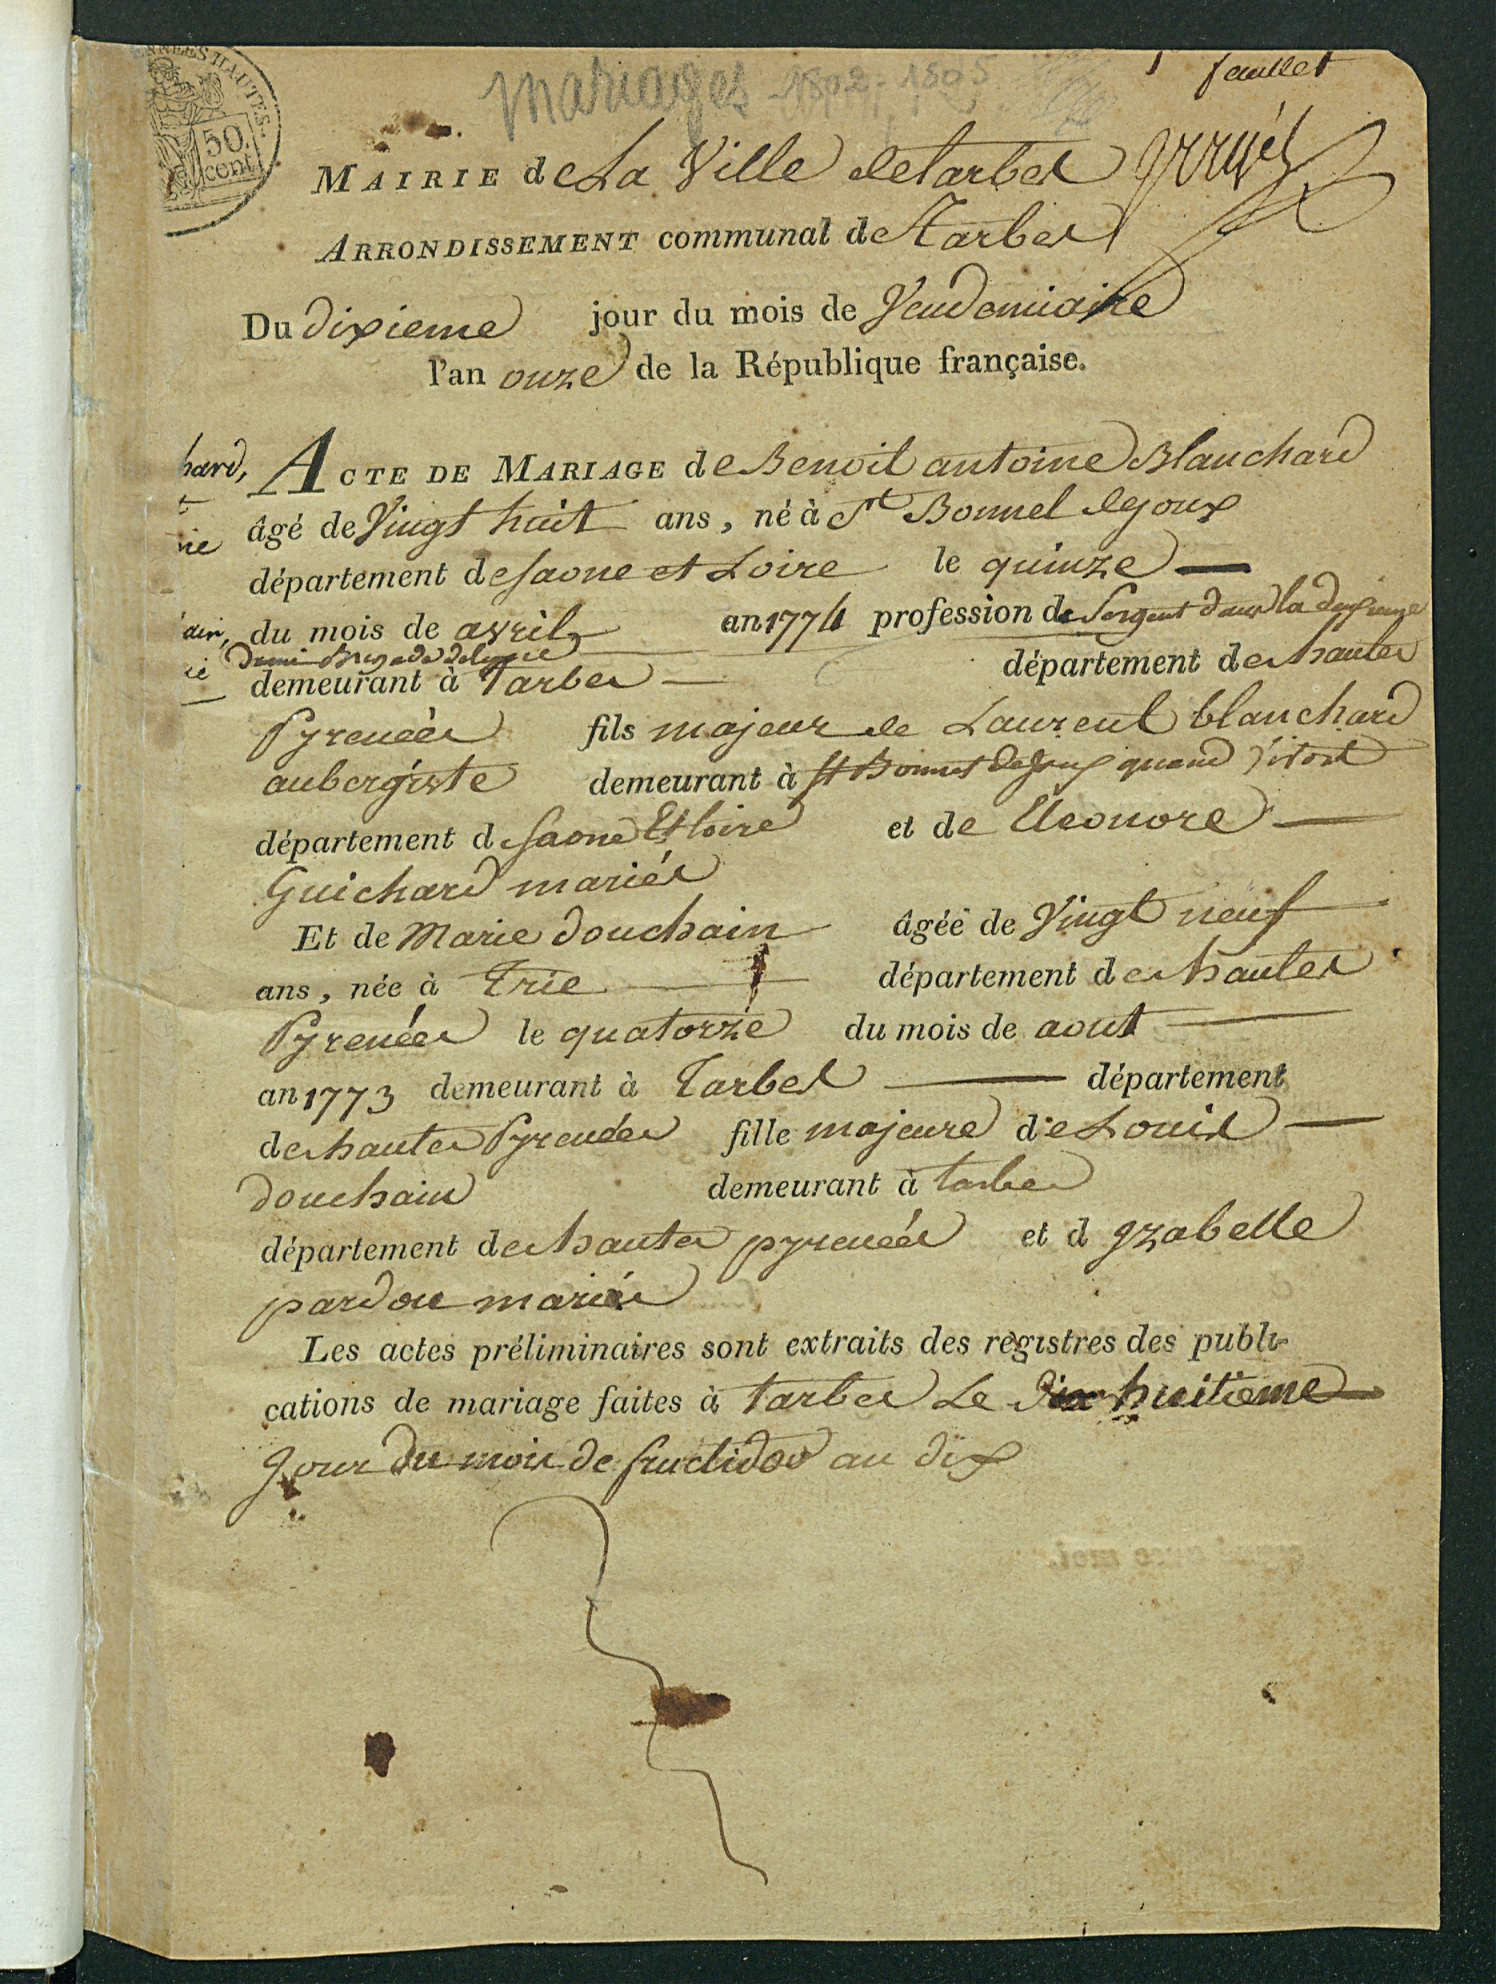 PYRÉNÉES HAUTES.
50.
cent
mariages 1802-1805
1 feuillet
MAIRIE de La Ville de tarbes
ARRONDISSEMENT communal de Tarbes
Du dixieme jour du mois de Vendemiaire
l'an onze de la République française.
hard, ACTE DE MARIAGE de Benoit antoine Blanchard
âgé de Vingt huit ans, né à St Bonnet dejoux
département de Saone et Loire le quinze
du mois de avril an 1774 profession de Sergent dans la dixieme
Demi Brigade de ligne
demeurant à Tarbes département des hautes
Pyrenées fils majeur de Laurent blanchard
aubergiste demeurant à St Bonnet de Joux quand vivoit
département de Saone Et loire et de Eleonore
Guichard mariés
Et de Marie douchain âgée de Vingt neuf
ans, née à Trie département des hautes
Pyrenées le quatorze du mois de aout
an 1773 demeurant à Tarbes département
des hautes Pyrenées fille majeure de Louis
douchain demeurant à tarbes
département des hautes pyrenées et d yzabelle
pardou mariés
Les actes préliminaires sont extraits des registres des publi-
cations de mariage faites à tarbes Le Dix huitieme
Jour du mois de fructidor an dix